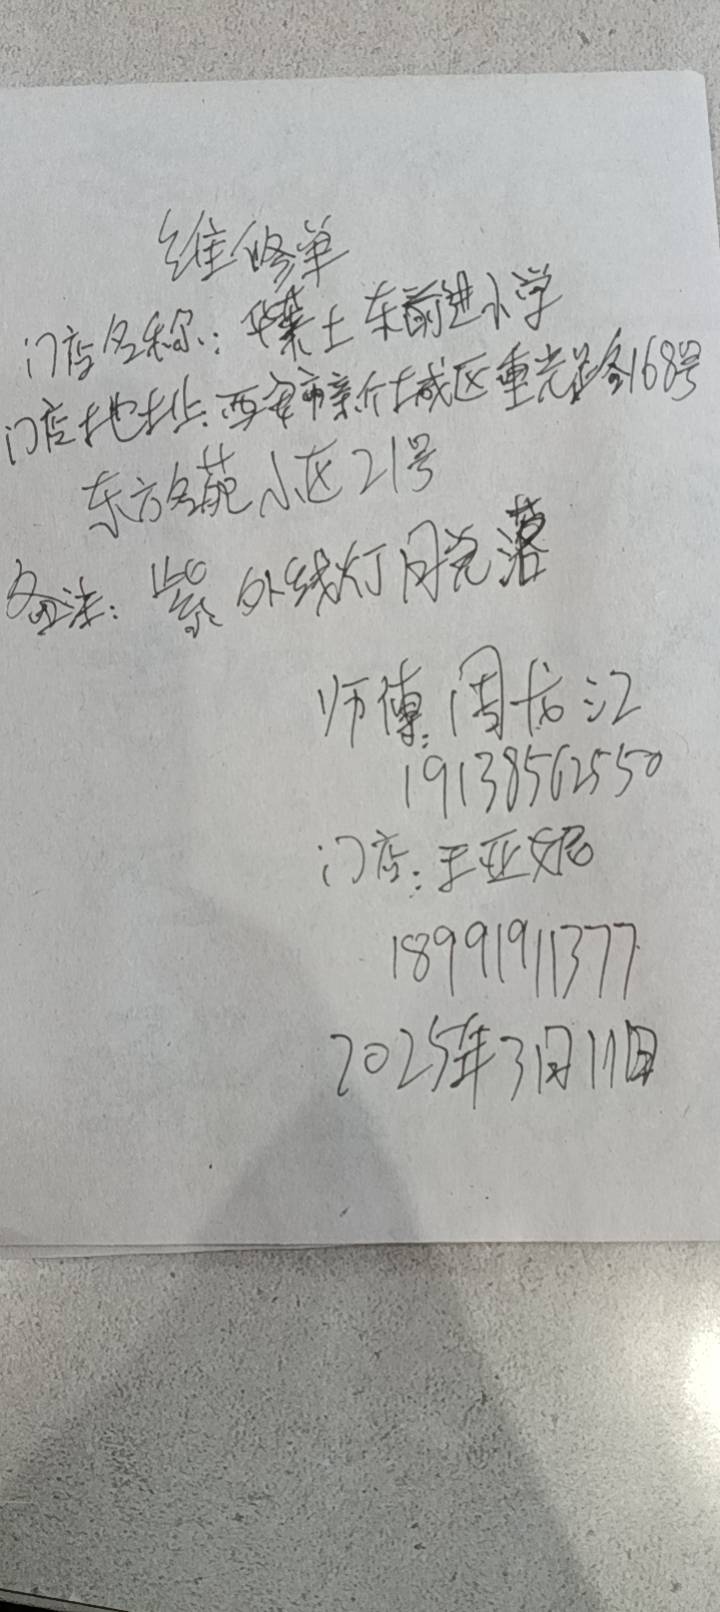 维修单
门店名称：华莱士东前进小学
门店地址：西安市新城区重光路168号
东方名苑小区21号
备注：紫外线灯脱落
师傅：周龙江
19138562550
门店：王亚妮
18991911377
2025年3月11日